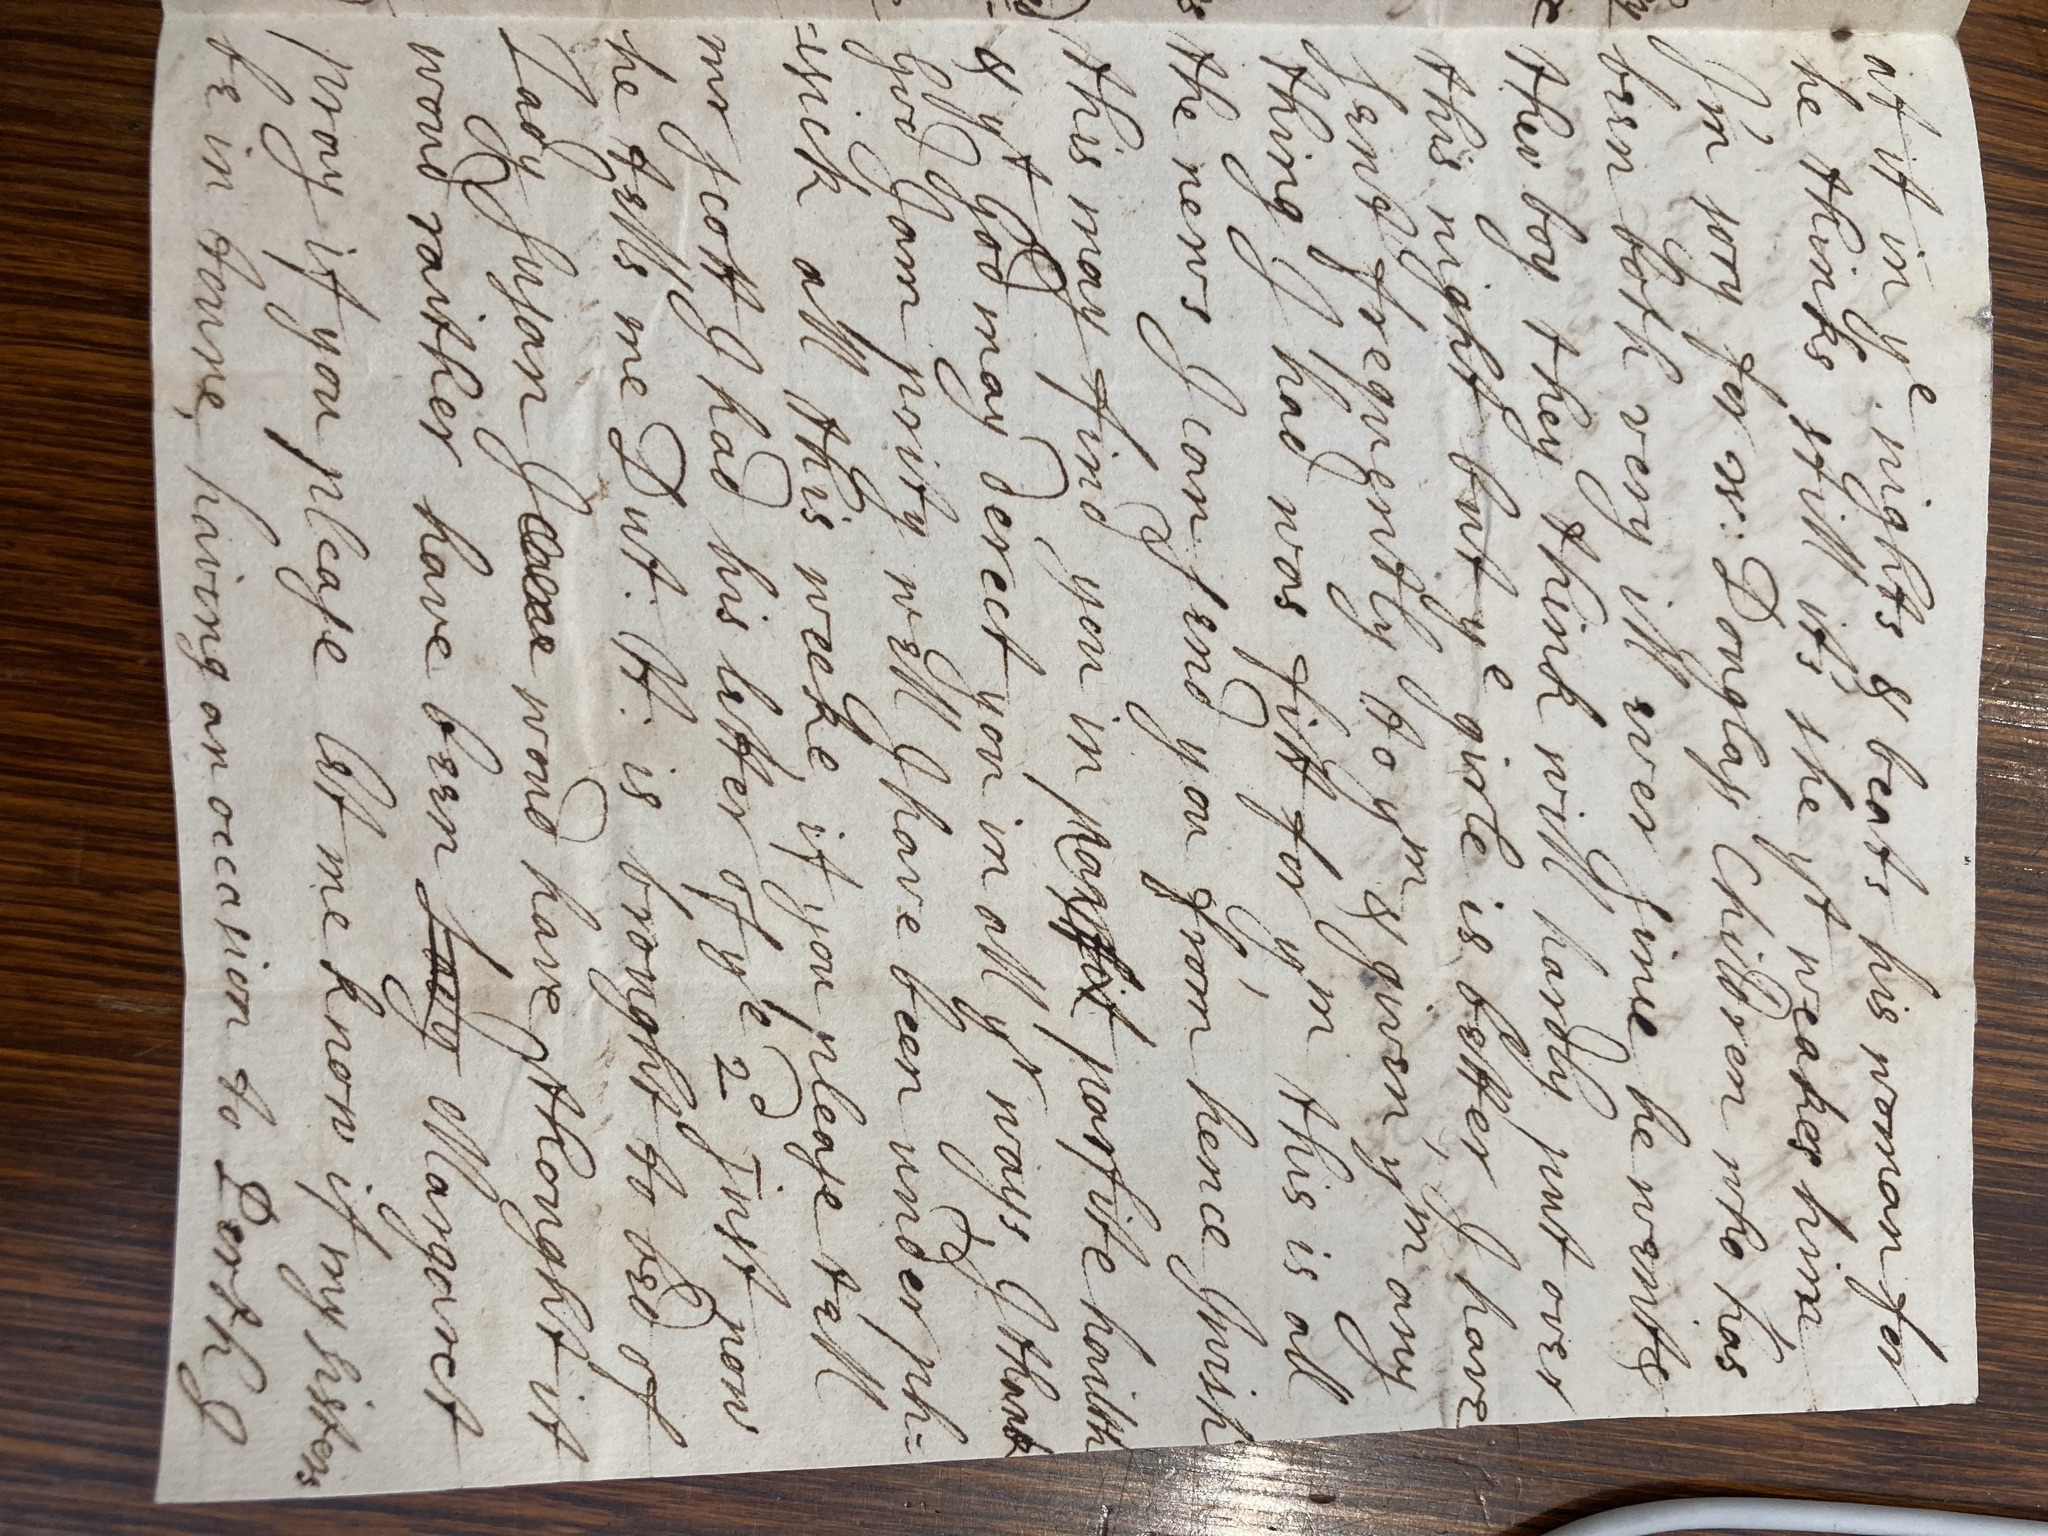 at it in yᵉ nights & beats his woman for
he thinks still it's she yᵗ weakes him,
I'm sory for w: Douglass Children who has
been both very ill ever since he went &
ther boy they think will hardly put over
this night but yᵉ girle is better, I have
sent frequently to yᵐ & given yᵐ any
thing I had was fitt for yᵐ, this is all
the news I can send you from hence I wish
this may find you in parfit parfite hailth
& yᵗ God may derect you in all yʳ ways, I thank
God I am prity well I have been under ph=
=isick all this weeke, if you please tell
mr scott I had his letter of yᵉ 2ᵈ just now
he tells me Dut: H: is brought to bed of
Lady Susan I woud have thought it
woud raither have been Lady Margaret
pray if you please let me know if my sisters
be in toune, having an occasion to Perth I